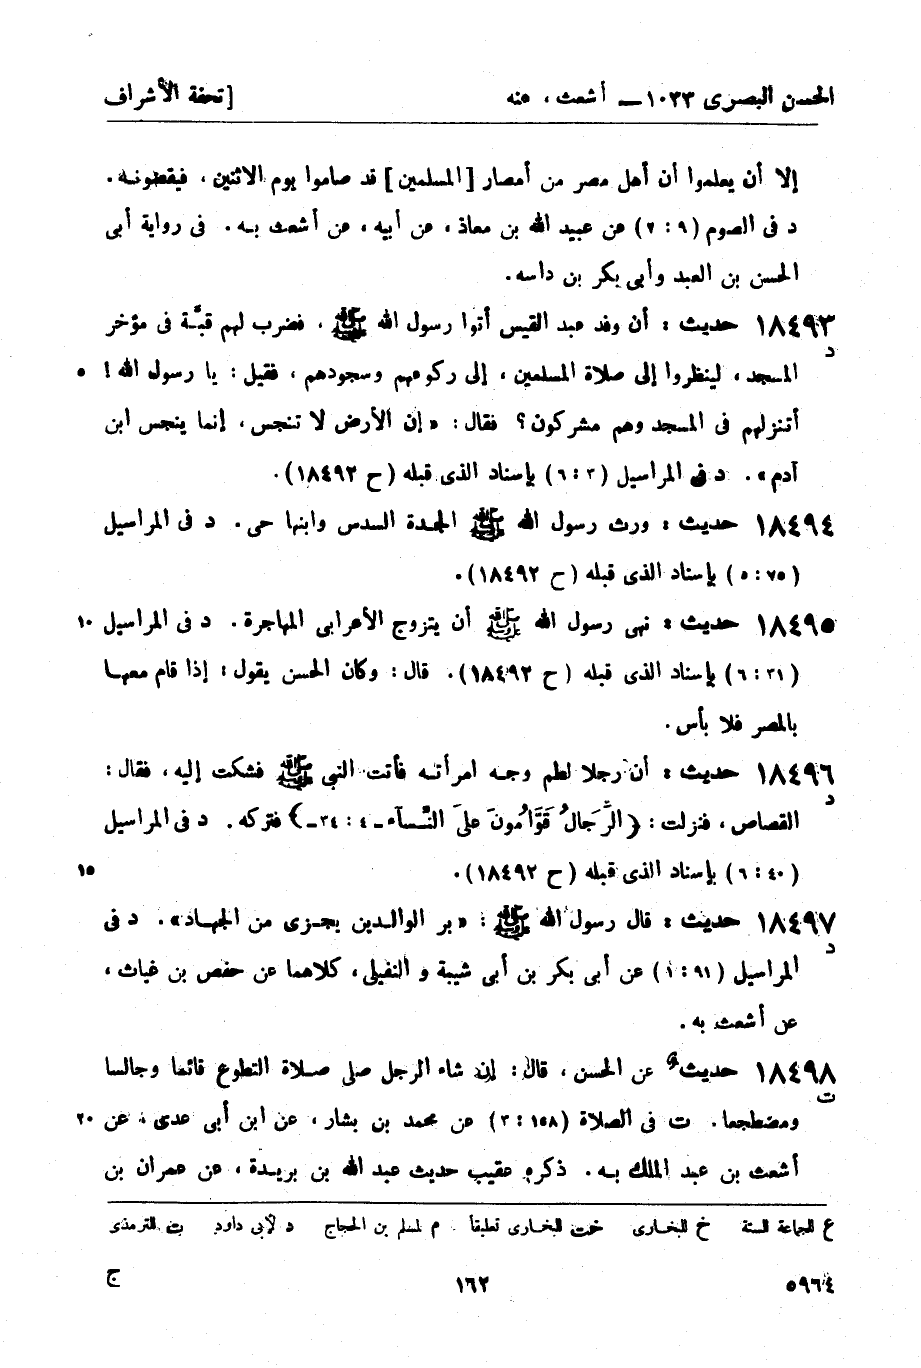 الحسن البصرى ١٠٣٣ — أشعث ، عنه [تحفة الأشراف
إلا أن يعلموا أن أهل مصر من أمصار [المسلمين] قد صاموا يوم الاثنين ، فيقضونه .
د فى الصوم (٩ : ٢) عن عبيد الله بن معاذ ، عن أبيه ، عن أشعث بـه . فى رواية أبى
الحسن بن العبد وأبى بكر بن داسه .
١٨٤٩٣ حديث : أن وفد عبد القيس أتوا رسول الله ﷺ ، فضرب لهم قبَّة فى مؤخر
د
المسجد ، لينظروا إلى صلاة المسلمين ، إلى ركوعهم وسجودهم ، فقيل : يا رسول الله ! ٥
أتنزلهم فى المسجد وهم مشركون ؟ فقال : «إن الأرض لا تنجس ، إنما ينجس ابن
آدم» . د فى المراسيل (٣ : ٦) بإسناد الذى قبله (ح ١٨٤٩٢) .
١٨٤٩٤ حديث : ورث رسول الله ﷺ الجدة السدس وابنها حى . د فى المراسيل
(٧٥ : ٥) بإسناد الذى قبله (ح ١٨٤٩٢) .
١٨٤٩٥ حديث : نهى رسول الله ﷺ أن يتزوج الأعرابى المهاجرة . د فى المراسيل ١٠
(٣١ : ٦) بإسناد الذى قبله (ح ١٨٤٩٢) . قال : وكان الحسن يقول : إذا قام معهـا
بالمصر فلا بأس .
١٨٤٩٦ حديث : أن رجلا لطم وجـه امرأتـه فأتت النبى ﷺ فشكت إليه ، فقال :
د
القصاص ، فنزلت : ﴿الرِّجَالُ قَوَّامُونَ عَلىَ النَّسـآء ـ ٤ : ٣٤ ـ﴾ فتركه . د فى المراسيل
(٤٠ : ٦) بإسناد الذى قبله (ح ١٨٤٩٢) . ١٥
١٨٤٩٧ حديث : قال رسول الله ﷺ : «بر الوالـدين يجـزى من الجهـاد» . د فى
د
المراسيل (٩١ : ١) عن أبى بكر بن أبى شيبة و النفيلى ، كلاهما عن حفص بن غياث ،
عن أشعث به .
١٨٤٩٨ حديث عن الحسن ، قال : إن شاء الرجل صلى صـلاة التطوع قائما وجالسا
ت
ومضطجعا . ت فى الصلاة (١٥٨ : ٣) عن محمد بن بشار ، عن ابن أبى عدى ، عن ٢٠
أشعث بن عبد الملك بـه . ذكره عقيب حديث عبد الله بن بريـدة ، عن عمران بن
ع للجماعة الستة خ للبخـارى خت للبخارى تعليقاً م لمسلم بن الحجاج د لأبى داود ت للترمذى
٥٩٦٤ ١٦٢ ج